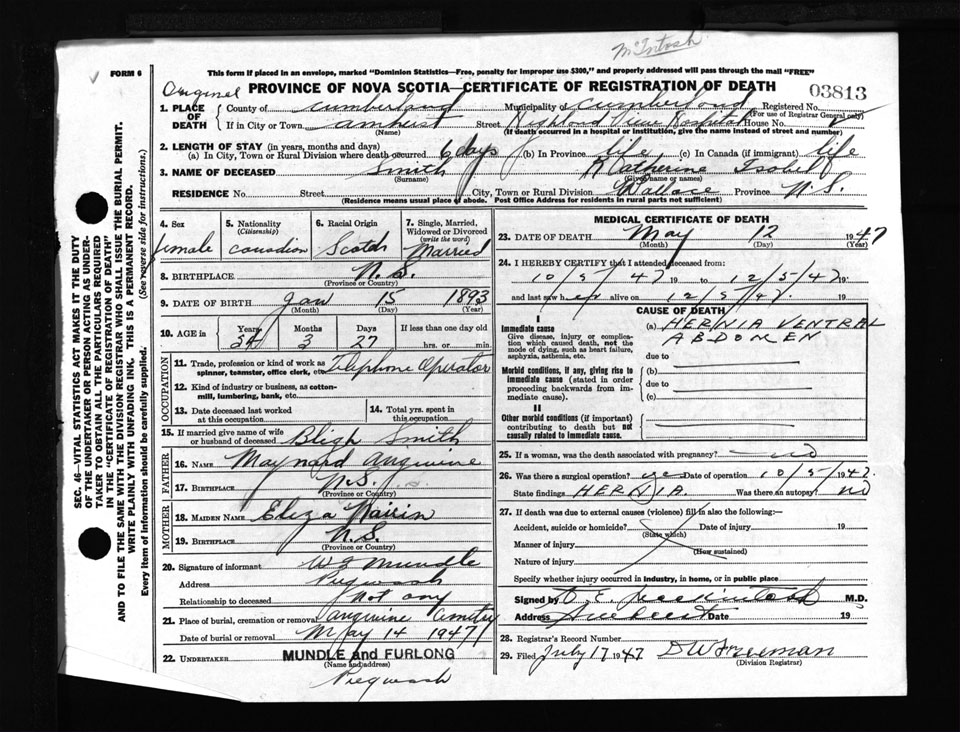 McIntosh
FORM 6
This form if placed in an envelope, marked "Dominion Statistics—Free, penalty for improper use $300," and properly addressed will pass through the mail "FREE"
Original
PROVINCE OF NOVA SCOTIA—CERTIFICATE OF REGISTRATION OF DEATH
03813
1. PLACE OF DEATH
County of Cumberland Municipality of Cumberland Registered No.
(For use of Registrar General only)
If in City or Town Amherst Street Highland View Hospital House No.
(Name) (If death occurred in a hospital or institution, give the name instead of street and number)
2. LENGTH OF STAY (in years, months and days)
(a) In City, Town or Rural Division where death occurred 6 days (b) In Province life (c) In Canada (if immigrant) life
3. NAME OF DECEASED Smith Katherine Isabel
(Surname) (Given name or names)
RESIDENCE No. Street City, Town or Rural Division Wallace Province N.S.
(Residence means usual place of abode. Post Office Address for residents in rural parts not sufficient)
SEC. 46—VITAL STATISTICS ACT MAKES IT THE DUTY
OF THE UNDERTAKER OR PERSON ACTING AS UNDER-
TAKER TO OBTAIN ALL THE PARTICULARS REQUIRED
IN THE "CERTIFICATE OF REGISTRATION OF DEATH"
AND TO FILE THE SAME WITH THE DIVISION REGISTRAR WHO SHALL ISSUE THE BURIAL PERMIT.
WRITE PLAINLY WITH UNFADING INK. THIS IS A PERMANENT RECORD.
Every item of information should be carefully supplied. (See reverse side for instructions.)
4. Sex
female
5. Nationality
(Citizenship)
Canadian
6. Racial Origin
Scotch
7. Single, Married,
Widowed or Divorced
(write the word)
Married
8. BIRTHPLACE N.S.
(Province or Country)
9. DATE OF BIRTH Jan 15 1893
(Month) (Day) (Year)
10. AGE in
Years Months Days If less than one day old
54 3 27 hrs. or min.
OCCUPATION
11. Trade, profession or kind of work as Telephone Operator
spinner, teamster, office clerk, etc.
12. Kind of industry or business, as cotton-
mill, lumbering, bank, etc.
13. Date deceased last worked
at this occupation
14. Total yrs. spent in
this occupation
15. If married give name of wife
or husband of deceased Bligh Smith
FATHER
16. NAME Maynard Angevine
17. BIRTHPLACE N.S.
(Province or Country)
MOTHER
18. MAIDEN NAME Eliza
19. BIRTHPLACE N.S.
(Province or Country)
20. Signature of informant Mundle
Address Pugwash
Relationship to deceased Not any
21. Place of burial, cremation or removal Angevine Cemetery
Date of burial or removal May 14 1947
22. UNDERTAKER MUNDLE and FURLONG
(Name and address)
Pugwash
MEDICAL CERTIFICATE OF DEATH
23. DATE OF DEATH May 12 1947
(Month) (Day) (Year)
24. I HEREBY CERTIFY that I attended deceased from:
10/5/47 19 to 12/5/47 19
and last saw her alive on 12/5/47. 19
CAUSE OF DEATH
I
Immediate cause
Give disease, injury or complica-
tion which caused death, not the
mode of dying, such as heart failure,
asphyxia, asthenia, etc.
(a) HERNIA VENTRAL
ABDOMEN
due to
Morbid conditions, if any, giving rise to
immediate cause (stated in order
proceeding backwards from im-
mediate cause).
(b)
due to
(c)
II
Other morbid conditions (if important)
contributing to death but not
causally related to immediate cause.
25. If a woman, was the death associated with pregnancy? no
26. Was there a surgical operation? yes Date of operation 10/5/1947.
State findings HERNIA. Was there an autopsy? no
27. If death was due to external causes (violence) fill in also the following:—
Accident, suicide or homicide? Date of injury 19
(State which)
Manner of injury
(How sustained)
Nature of injury
Specify whether injury occurred in industry, in home, or in public place
Signed by M.D.
Address Amherst Date 19
28. Registrar's Record Number
29. Filed July 17 1947 D W Freeman
(Division Registrar)